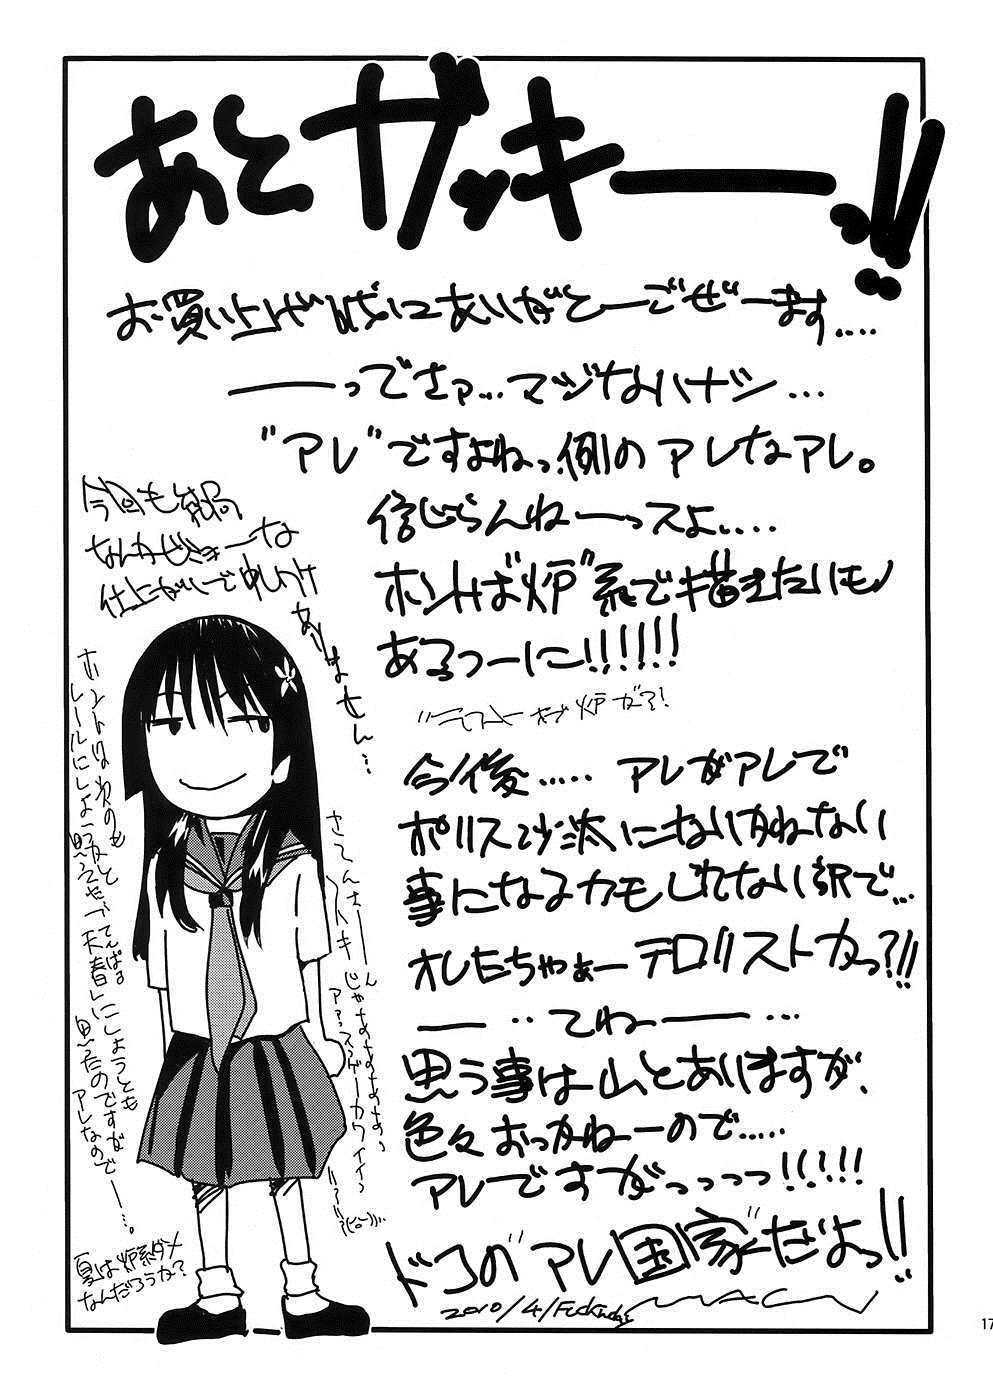 あとガッキーーッ!!
お買い上げ誠にありがとーごぜーます....
――ってさァ...マジなハナシ...
"アレ"ですよねっ、例のアレなアレ。
信じらんねーっスよ....
ホントは"炉"系で描きたいもの
あるつーに!!!!!!
今後..... アレがアレで
ポリス沙汰になりかねない
事になるカモしれない訳で...
オレたちゃぁーテロリストカっ?!!
――‥てねー――...
思う事は山とありますが、
色々おっかねーので.....
アレですがっっっっ!!!!!
ドコの"アレ国家"だよっ!!
2010/4/
今回も結局
なんかビミョーな
仕上がりで申しわけ
ありません...
さてんさーん
じゃなああああい
スゲーカワイイ
ホントは次のも
レールにしよーかと
思ってたのですが
アレなので―...。
夏は炉系ダメ
なんだろうか?
17